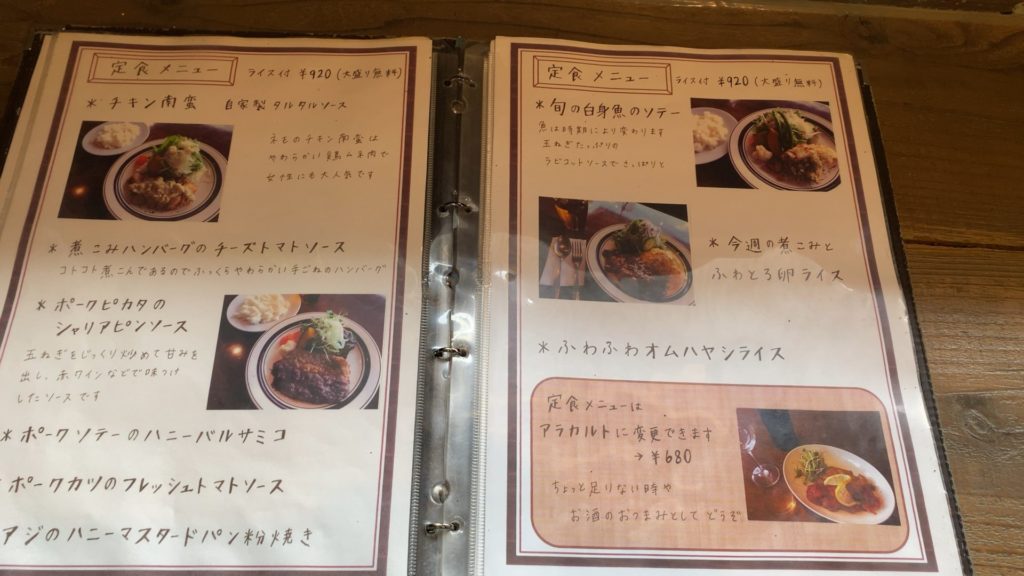 定食メニュー ライス付 ¥920 (大盛り無料)
* チキン南蛮 自家製タルタルソース
ネモのチキン南蛮は
やわらかい鶏ムネ肉で
女性にも大人気です
* 煮こみハンバーグのチーズトマトソース
コトコト煮こんであるのでふっくらやわらかい手ごねのハンバーグ
* ポークピカタの
シャリアピンソース
玉ねぎをじっくり炒めて甘みを
出し、赤ワインなどで味つけ
したソースです
* ポークソテーのハニーバルサミコ
ポークカツのフレッシュトマトソース
アジのハニーマスタードパン粉焼き
定食メニュー ライス付 ¥920 (大盛り無料)
* 旬の白身魚のソテー
魚は時期により変わります
玉ねぎたっぷりの
ラビゴットソースでさっぱりと
* 今週の煮こみと
ふわとろ卵ライス
* ふわふわオムハヤシライス
定食メニューは
アラカルトに変更できます
→ ¥680
ちょっと足りない時や
お酒のおつまみとしてどうぞ